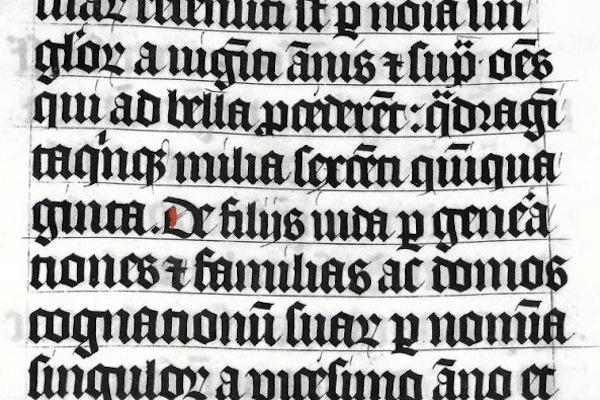 suaꝝ recensiti st̄ ꝑ noīa sin
gloꝝ a uigīti ānis ⁊ sup̄· oēs
qui ad bella ꝓcederēt: q̈dragī
taqⁱnqꝫ milia sexcēti qⁱnqua
ginta. De filijs iuda ꝑ geneā
tiones ⁊ familias ac domos
cognationū suaꝝ ꝑ nomīa
singuloꝝ a vicesimo āno et